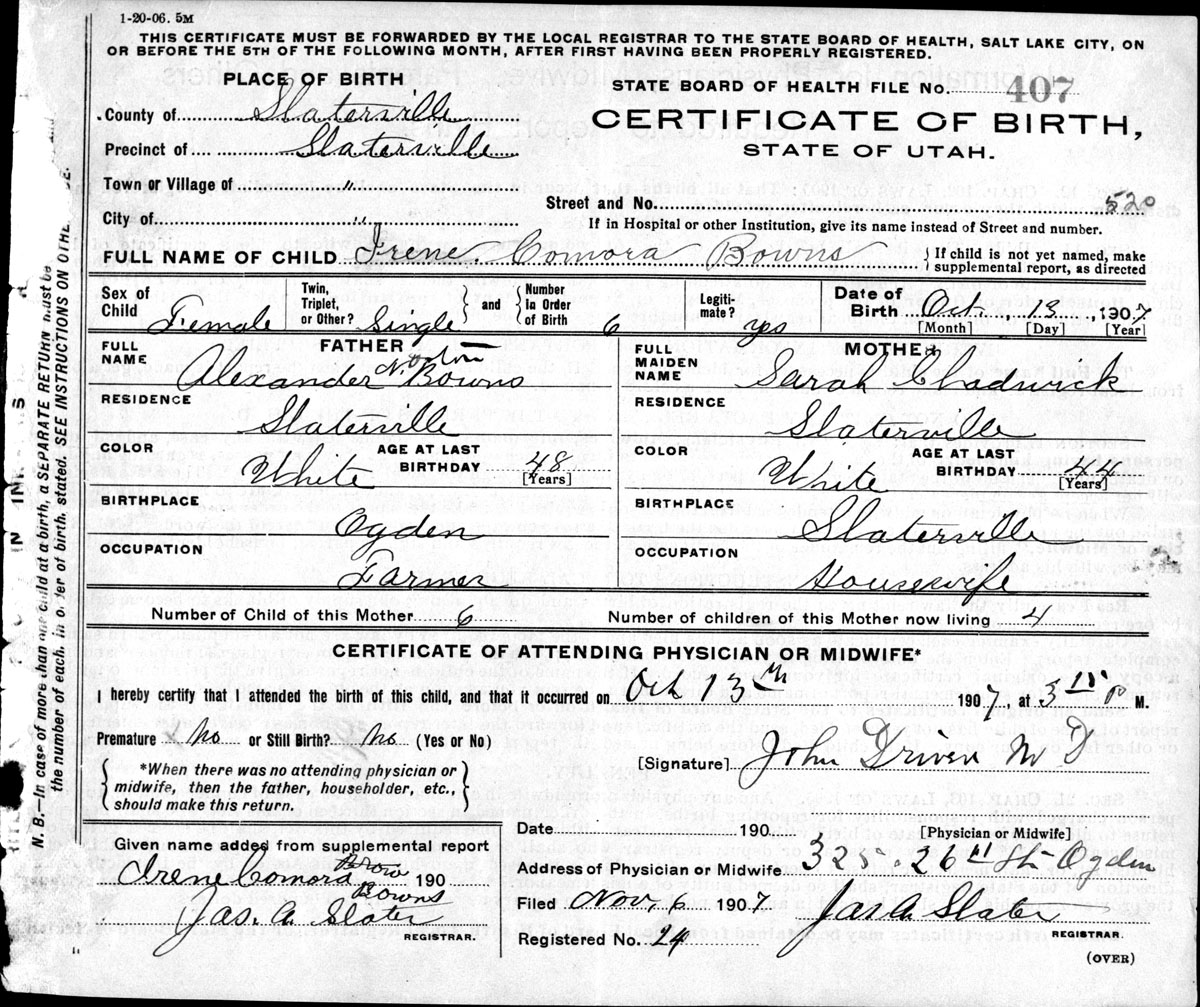 1-20-06. 5M
THIS CERTIFICATE MUST BE FORWARDED BY THE LOCAL REGISTRAR TO THE STATE BOARD OF HEALTH, SALT LAKE CITY, ON
OR BEFORE THE 5TH OF THE FOLLOWING MONTH, AFTER FIRST HAVING BEEN PROPERLY REGISTERED.
PLACE OF BIRTH
County of Slaterville
Precinct of Slaterville
Town or Village of "
City of "
STATE BOARD OF HEALTH FILE NO. 407
CERTIFICATE OF BIRTH,
STATE OF UTAH.
Street and No. 520
If in Hospital or other Institution, give its name instead of Street and number.
FULL NAME OF CHILD Irene Comora Bowns
If child is not yet named, make
supplemental report, as directed
Sex of Child Female
Twin, Triplet, or Other? Single and Number in Order of Birth 6
Legitimate? yes
Date of Birth Oct. 13, 1907
[Month] [Day] [Year]
FATHER
FULL NAME Alexander Bowns
RESIDENCE Slaterville
COLOR White AGE AT LAST BIRTHDAY 48 [Years]
BIRTHPLACE Ogden
OCCUPATION Farmer
MOTHER
FULL MAIDEN NAME Sarah Chadwick
RESIDENCE Slaterville
COLOR White AGE AT LAST BIRTHDAY 44 [Years]
BIRTHPLACE Slaterville
OCCUPATION Housewife
Number of Child of this Mother 6 Number of children of this Mother now living 4
CERTIFICATE OF ATTENDING PHYSICIAN OR MIDWIFE*
I hereby certify that I attended the birth of this child, and that it occurred on Oct 13th 1907, at 3 P M.
Premature No or Still Birth? No (Yes or No)
*When there was no attending physician or
midwife, then the father, householder, etc.,
should make this return.
[Signature] John Driver M D
[Physician or Midwife]
Date 190
Given name added from supplemental report
Irene Comora Bowns 190
Jas. A. Slater
REGISTRAR.
Address of Physician or Midwife 325. 26th St. Ogden
Filed Nov. 6 1907 Jas. A. Slater
REGISTRAR.
Registered No. 24
(OVER)
N. B.—In case of more than one child at a birth, a SEPARATE RETURN must be
the number of each, in order of birth, stated. SEE INSTRUCTIONS ON OTHE